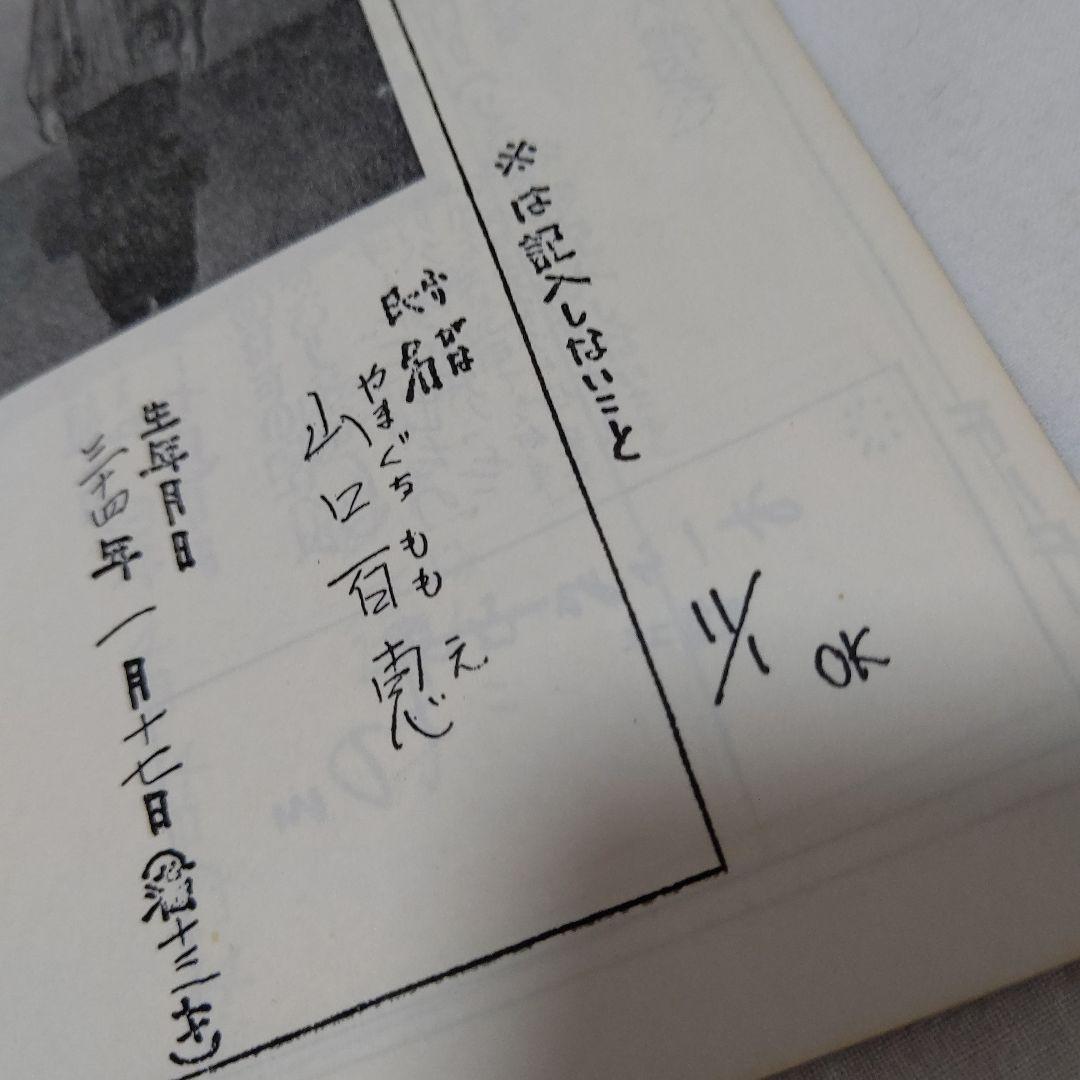 ※は記入しないこと
ふりがな
氏名
やまぐち ももえ
山口百恵
生年月日
三十四年一月十七日(満十三才)
11/1
OK